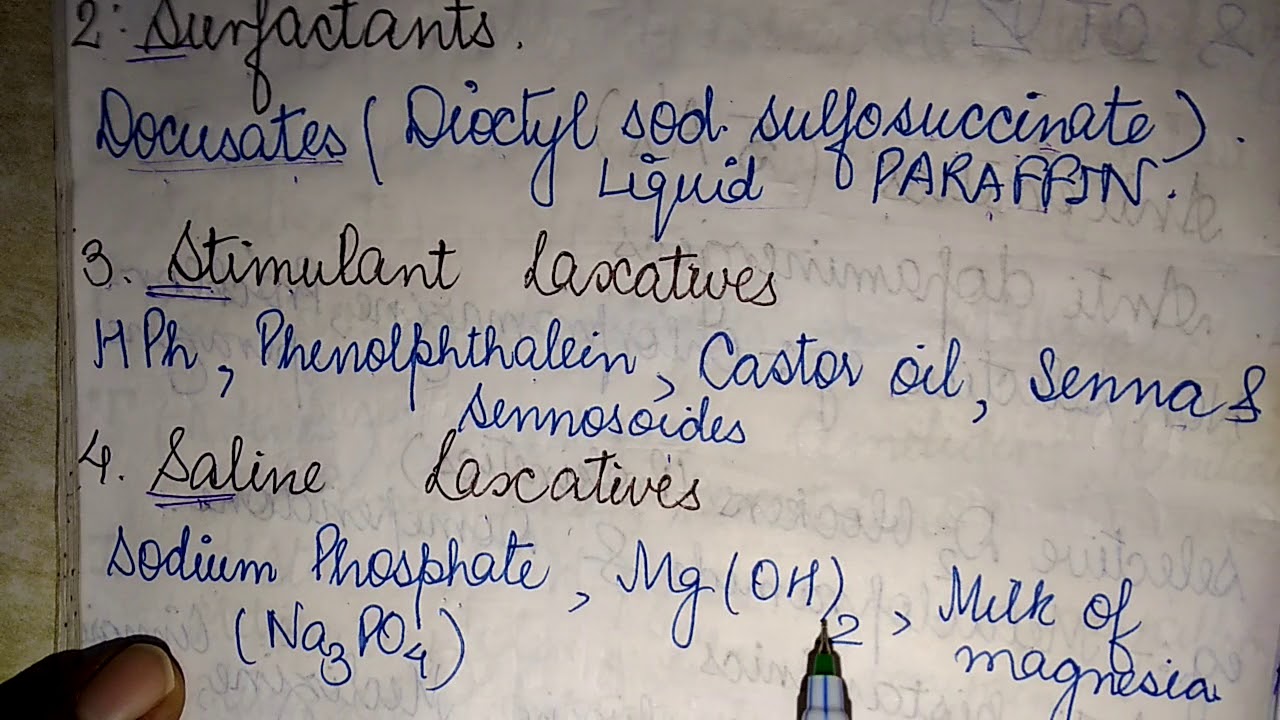 2: Surfactants.
Docusates ( Dioctyl sod. sulfosuccinate ).
Liquid PARAFFIN.
3. Stimulant Laxatives
HPh, Phenolphthalein, Castor oil, Senna &
sennosoides
4. Saline Laxatives
Sodium Phosphate, Mg(OH)2, Milk of
(Na3PO4) magnesia.